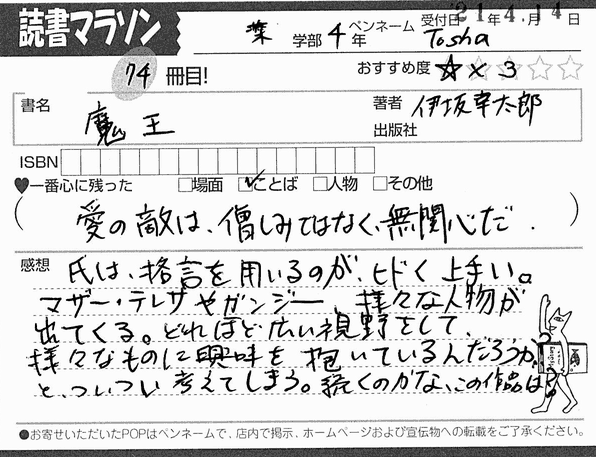 読書マラソン
薬 学部 4年 ペンネーム Tosha 受付日 '21年4月14日
74 冊目!
おすすめ度 ☆×3 ☆☆
書名 魔王
著者 伊坂幸太郎
出版社
ISBN
♥一番心に残った □場面 ☑ことば □人物 □その他
(愛の敵は、憎しみではなく、無関心だ.)
感想 氏は、格言を用いるのが、ヒドく上手い。
マザー・テレサやガンジー、様々な人物が
出てくる。どれほど広い視野をして、
様々なものに興味を抱いているんだろうか、
と、ついつい考えてしまう。続くのかな、この作品は?
●お寄せいただいたPOPはペンネームで、店内で掲示、ホームページおよび宣伝物への転載をご了承ください。